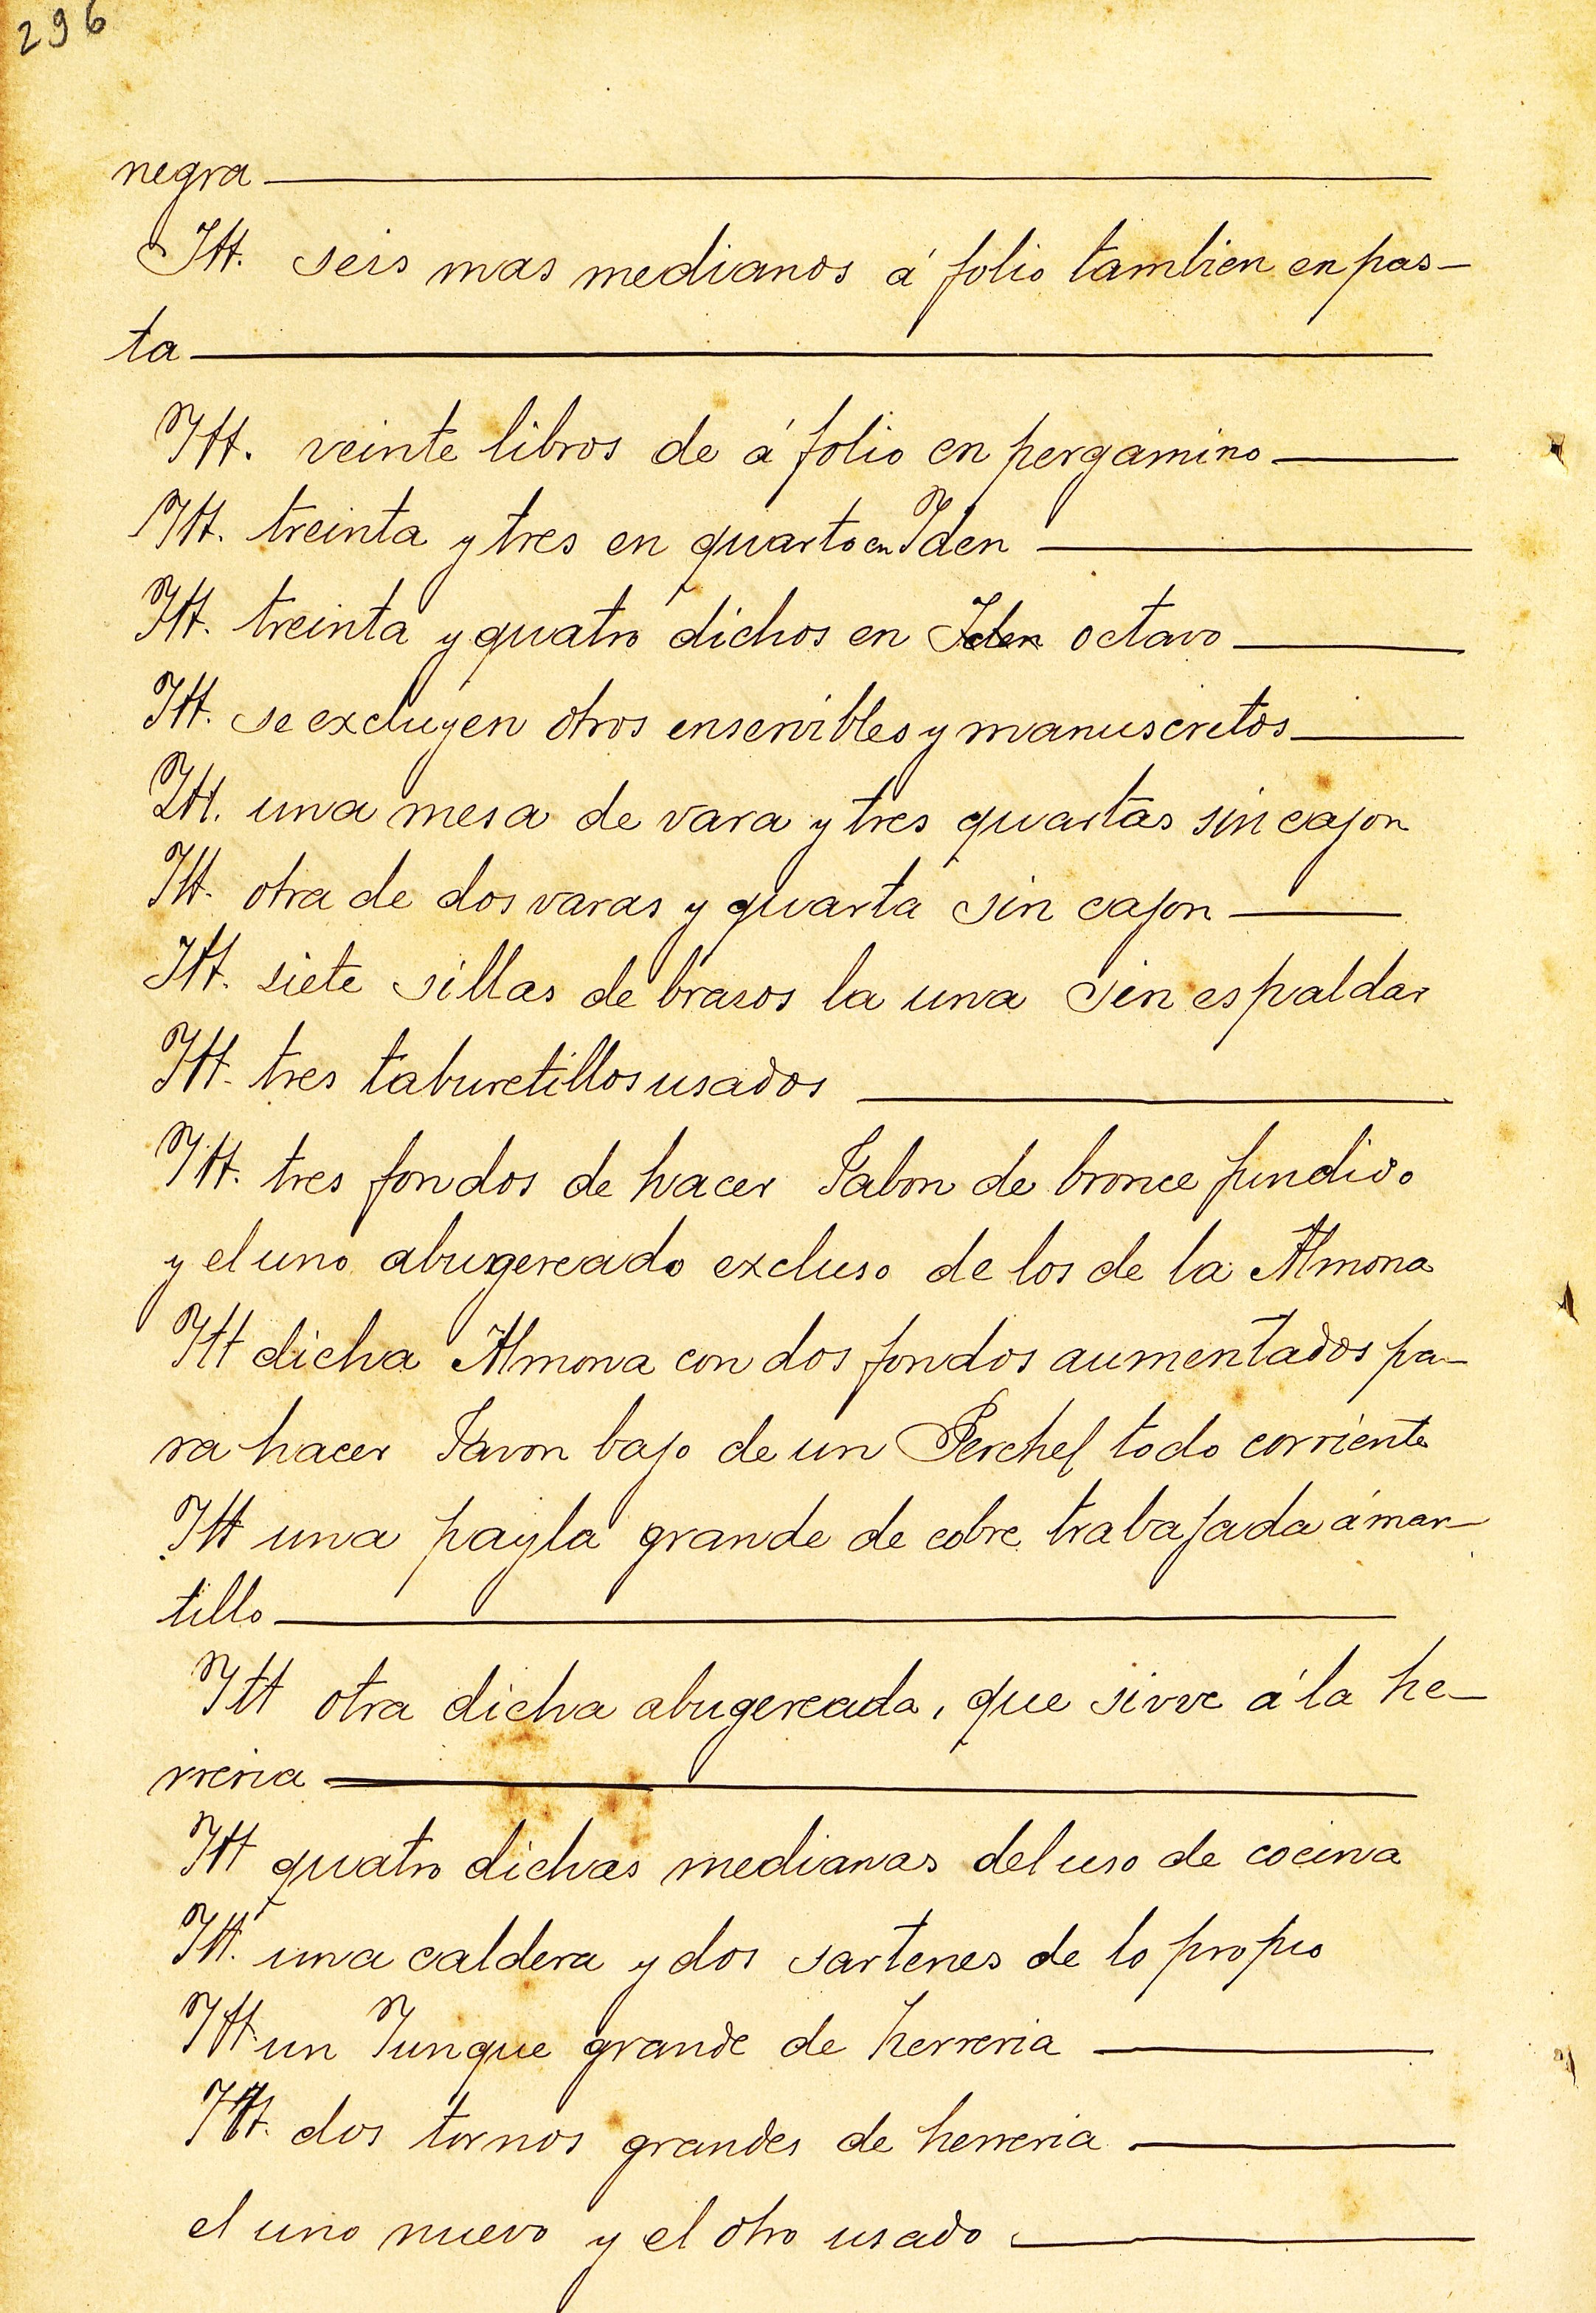 296
negra
Itt. seis mas medianos á folio tambien en pas-
ta
Itt. veinte libros de á folio en pergamino
Itt. treinta y tres en quarto en Iden
Itt. treinta y quatro dichos en Iden octavo
Itt. se excluyen otros enservibles y manuscritos
Itt. una mesa de vara y tres quartas sin cajon
Itt. otra de dos varas y quarta sin cajon
Itt. siete sillas de brasos la una sin espaldar
Itt. tres taburetillos usados
Itt. tres fondos de hacer Jabon de bronce fundido
y el uno abugereado excluso de los de la Almona
Itt dicha Almona con dos fondos aumentados pa-
ra hacer Javon bajo de un Perchel todo corriente
Itt una payla grande de cobre trabajada á mar-
tillo
Itt otra dicha abugereada, que sirve á la he-
rreria
Itt quatro dichas medianas del uso de cocina
Itt. una caldera y dos sartenes de lo propio
Itt un Iunque grande de herreria
Itt. dos tornos grandes de herreria
el uno nuevo y el otro usado